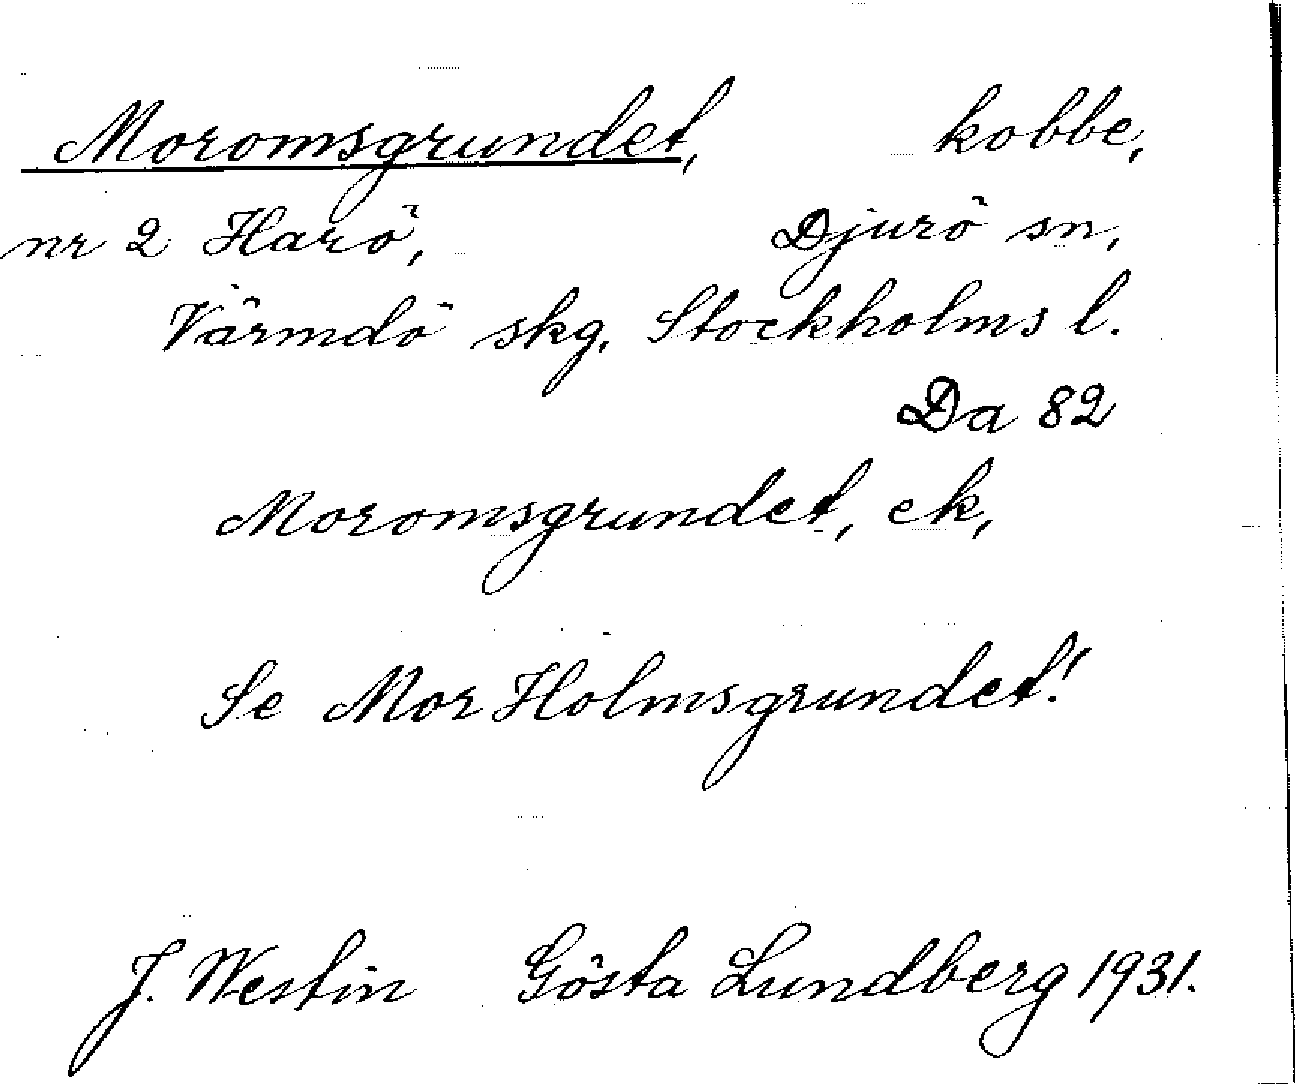 Moromsgrundet, kobbe,
nr 2 Harö, Djurö sn,
Värmdö skg, Stockholms l.
Da 82
Moromsgrundet, ek,
Se Mor Holmsgrundet!
J. Westin Gösta Lundberg 1931.